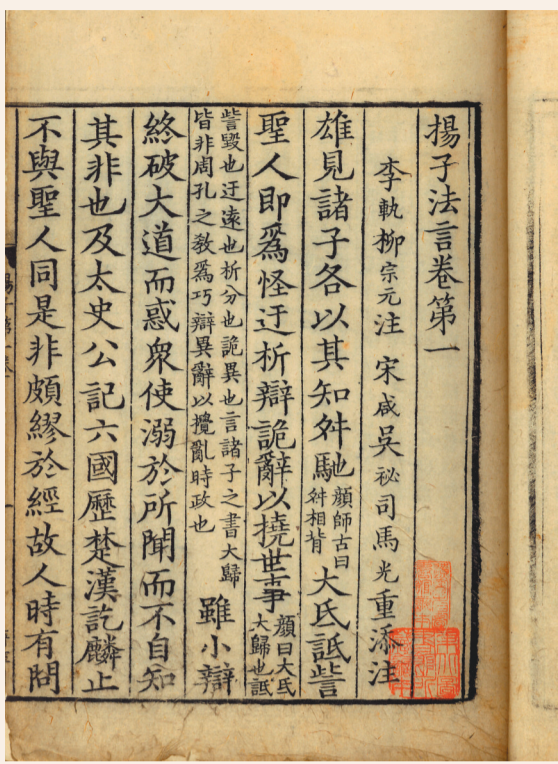 揚子法言卷第一
李軌柳宗元注 宋咸吳祕司馬光重添注
雄見諸子各以其知舛馳顔師古曰舛相背大氐詆訾
聖人即爲怪迂析辯詭辭以撓世事顔曰大氐大歸也詆
訾毀也迂遠也析分也詭異也言諸子之書大歸皆非周孔之教爲巧辯異辭以攪亂時政也雖小辯
終破大道而惑衆使溺於所聞而不自知
其非也及太史公記六國歷楚漢訖麟止
不與聖人同是非頗繆於經故人時有問